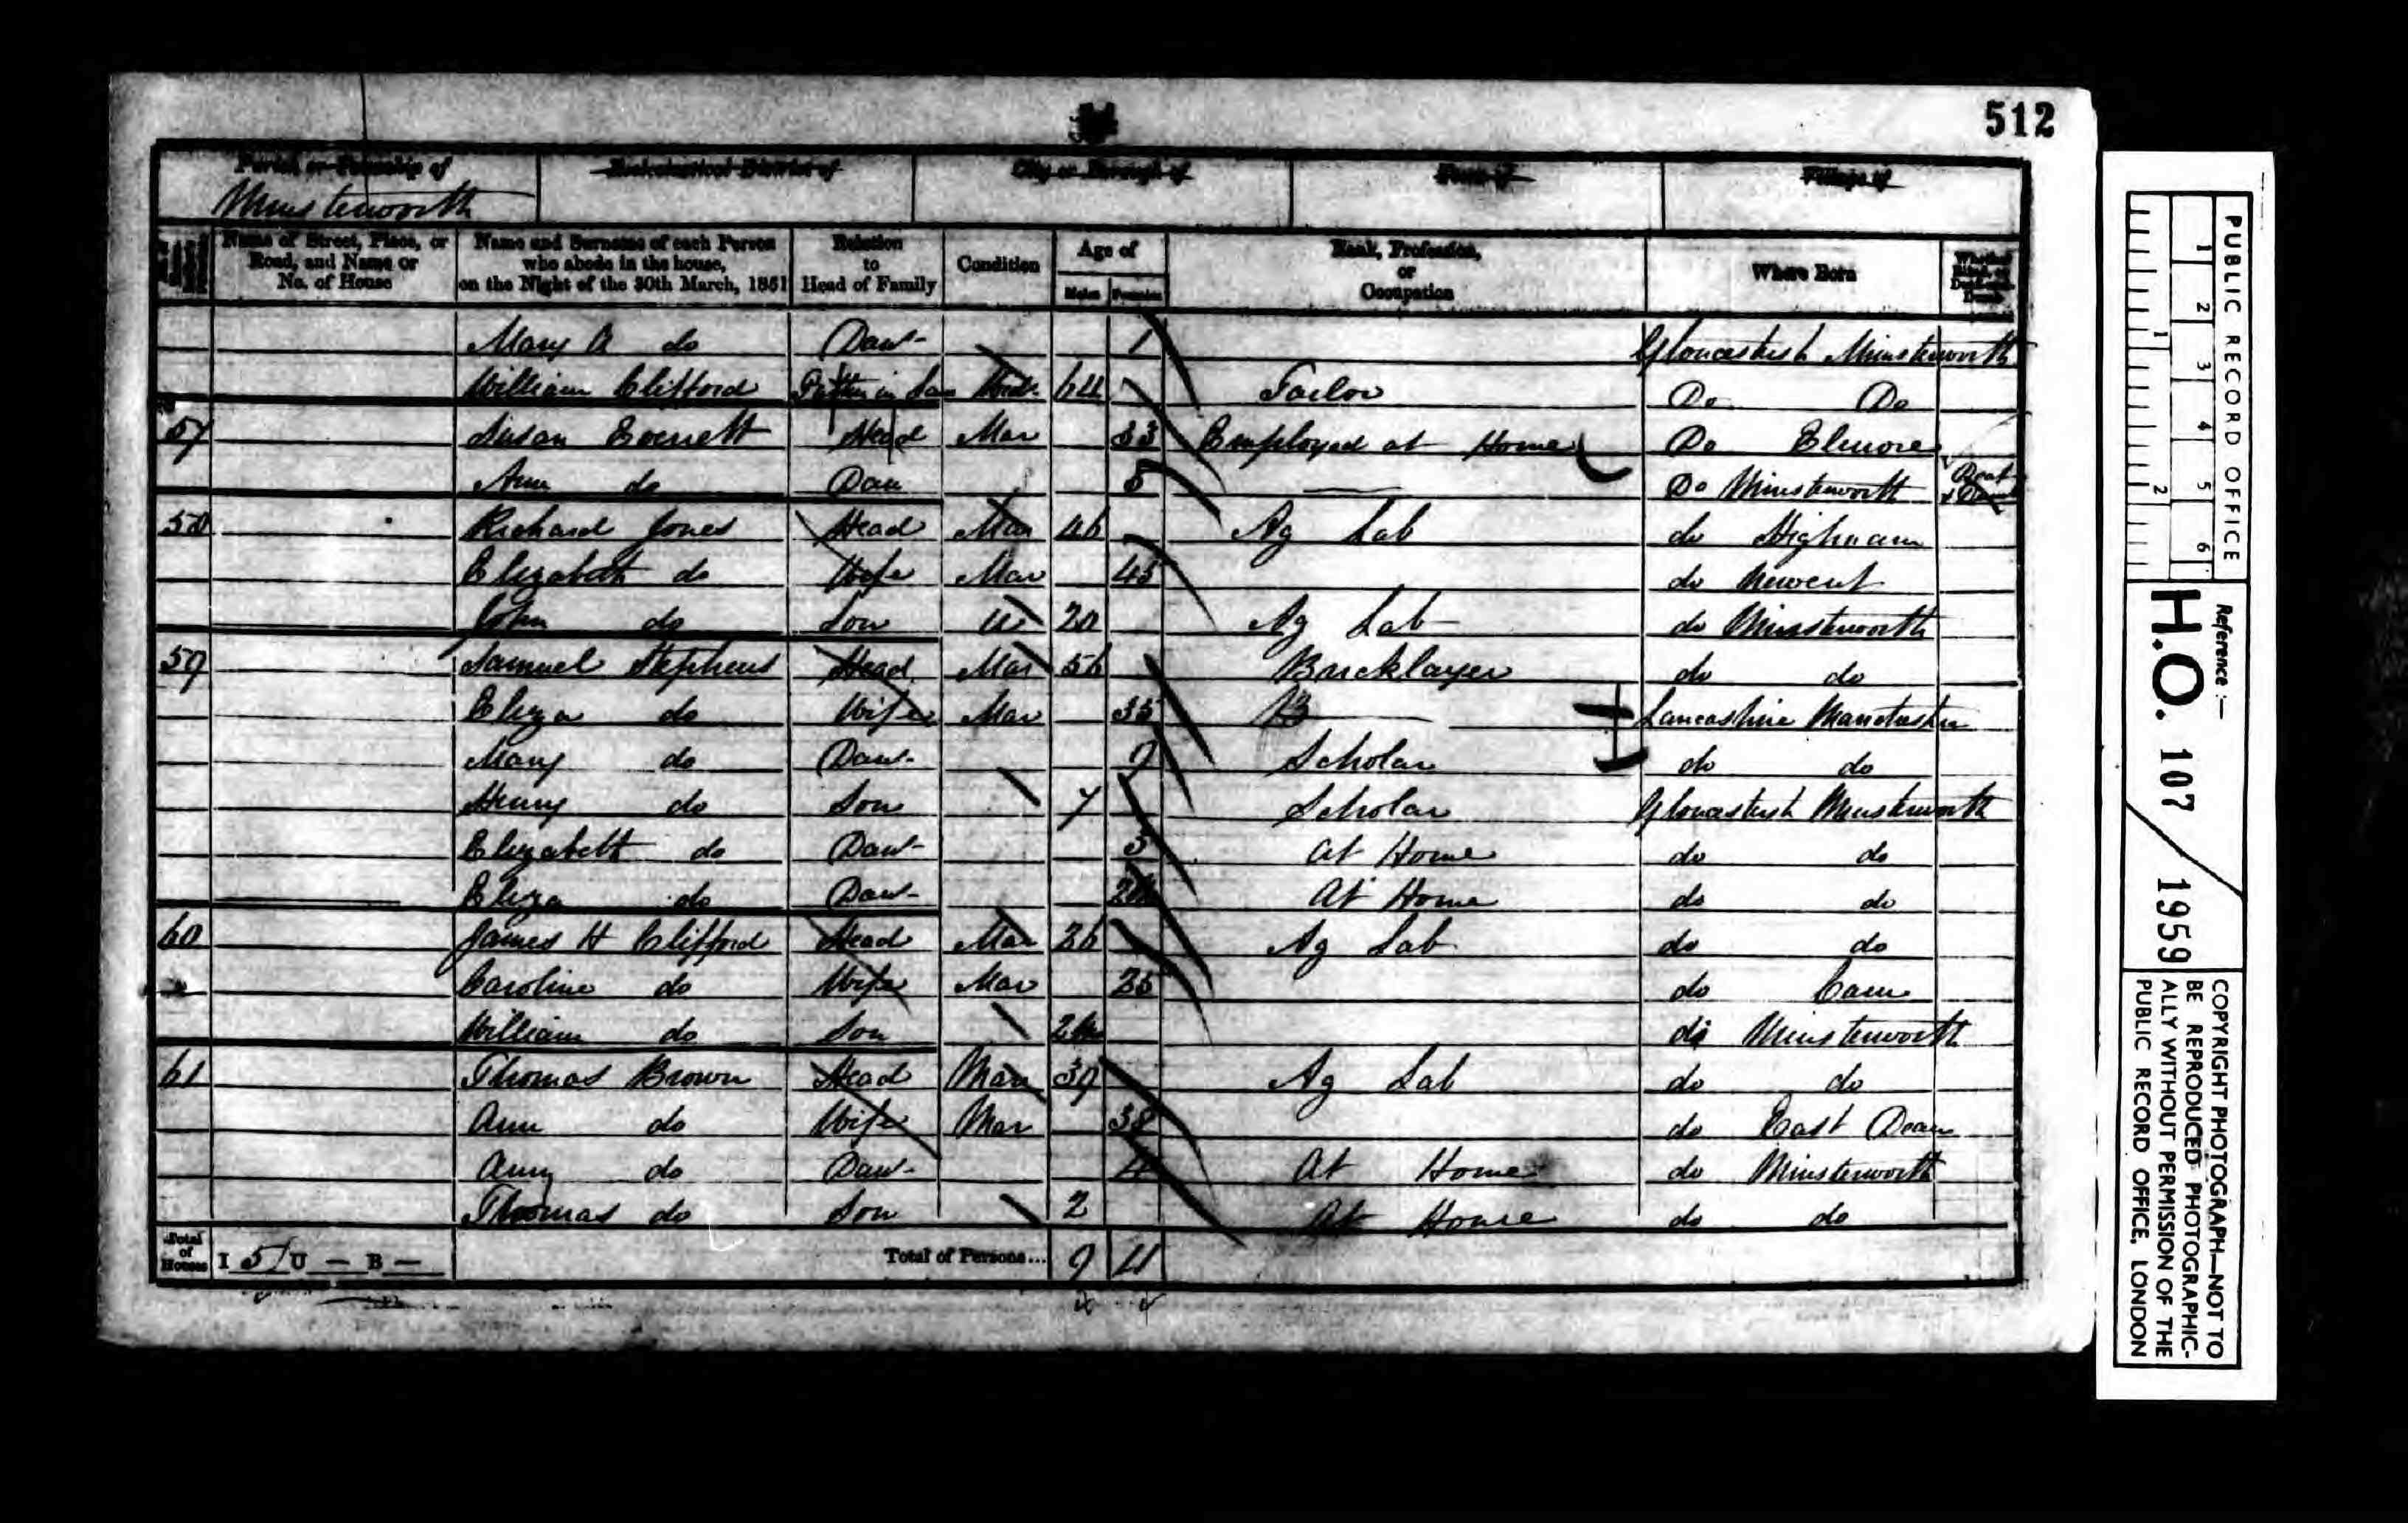 512
Parish or Township of
Ecclesiastical District of
City or Borough of
Town of
Village of
Minsterworth
Name of Street, Place, or Road, and Name or No. of House
Name and Surname of each Person who abode in the house, on the Night of the 30th March, 1851
Relation to Head of Family
Condition
Age of
Males Females
Rank, Profession, or Occupation
Where Born
Whether Blind, or Deaf-and-Dumb
Mary A do Daur 1 Gloucestersh Minsterworth
William Clifford Father in Law 64 Tailor Do Do
57 Susan Everett Head Mar 33 Employed at Home Do Elmore
Ann do Dau 5 Do Minsterworth Deaf & Dumb
58 Richard Jones Head Mar 46 Ag Lab do Highnam
Elizabeth do Wife Mar 45 do Newent
John do Son U 20 Ag Lab do Minsterworth
59 Samuel Stephens Head Mar 56 Bricklayer do do
Eliza do Wife Mar 35 Lancashire Manchester
Mary do Daur 9 Scholar do do
Henry do Son 7 Scholar Gloucestersh Minsterworth
Elizabeth do Daur 5 At Home do do
Eliza do Daur At Home do do
60 James H Clifford Head Mar 26 Ag Lab do do
Caroline do Wife Mar 25 do Cam
William do Son do Minsterworth
61 Thomas Brown Head Mar 39 Ag Lab do do
Ann do Wife Mar 38 do East Dean
Amy do Daur 4 At Home do Minsterworth
Thomas do Son 2 At Home do do
Total of Houses I 5 U — B —
Total of Persons... 9 11
PUBLIC RECORD OFFICE
1 2 3 4 5 6
1 2
Reference :—
H.O. 107 / 1959
COPYRIGHT PHOTOGRAPH—NOT TO
BE REPRODUCED PHOTOGRAPHIC-
ALLY WITHOUT PERMISSION OF THE
PUBLIC RECORD OFFICE, LONDON